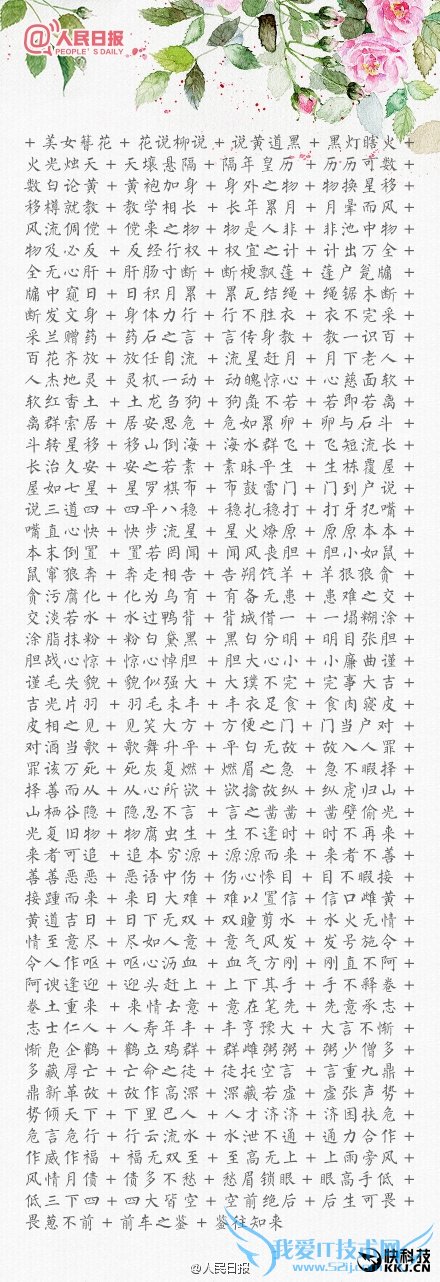 人民日报
PEOPLE'S DAILY
+ 美女簪花 + 花说柳说 + 说黄道黑 + 黑灯瞎火 +
火光烛天 + 天壤悬隔 + 隔年皇历 + 历历可数 +
数白论黄 + 黄袍加身 + 身外之物 + 物换星移 +
移樽就教 + 教学相长 + 长年累月 + 月晕而风 +
风流倜傥 + 傥来之物 + 物是人非 + 非池中物 +
物及必反 + 反经行权 + 权宜之计 + 计出万全 +
全无心肝 + 肝肠寸断 + 断梗飘蓬 + 蓬户瓮牖 +
牖中窥日 + 日积月累 + 累瓦结绳 + 绳锯木断 +
断发文身 + 身体力行 + 行不胜衣 + 衣不完采 +
采兰赠药 + 药石之言 + 言传身教 + 教一识百 +
百花齐放 + 放任自流 + 流星赶月 + 月下老人 +
人杰地灵 + 灵机一动 + 动魄惊心 + 心慈面软 +
软红香土 + 土龙刍狗 + 狗彘不若 + 若即若离 +
离群索居 + 居安思危 + 危如累卵 + 卵与石斗 +
斗转星移 + 移山倒海 + 海水群飞 + 飞短流长 +
长治久安 + 安之若素 + 素昧平生 + 生栋覆屋 +
屋如七星 + 星罗棋布 + 布鼓雷门 + 门到户说 +
说三道四 + 四平八稳 + 稳扎稳打 + 打牙犯嘴 +
嘴直心快 + 快步流星 + 星火燎原 + 原原本本 +
本末倒置 + 置若罔闻 + 闻风丧胆 + 胆小如鼠 +
鼠窜狼奔 + 奔走相告 + 告朔饩羊 + 羊狠狼贪 +
贪污腐化 + 化为乌有 + 有备无患 + 患难之交 +
交淡若水 + 水过鸭背 + 背城借一 + 一塌糊涂 +
涂脂抹粉 + 粉白黛黑 + 黑白分明 + 明目张胆 +
胆战心惊 + 惊心悼胆 + 胆大心小 + 小廉曲谨 +
谨毛失貌 + 貌似强大 + 大璞不完 + 完事大吉 +
吉光片羽 + 羽毛未丰 + 丰衣足食 + 食肉寝皮 +
皮相之见 + 见笑大方 + 方便之门 + 门当户对 +
对酒当歌 + 歌舞升平 + 平白无故 + 故入人罪 +
罪该万死 + 死灰复燃 + 燃眉之急 + 急不暇择 +
择善而从 + 从心所欲 + 欲擒故纵 + 纵虎归山 +
山栖谷隐 + 隐忍不言 + 言之凿凿 + 凿壁偷光 +
光复旧物 + 物腐虫生 + 生不逢时 + 时不再来 +
来者可追 + 追本穷源 + 源源而来 + 来者不善 +
善善恶恶 + 恶语中伤 + 伤心惨目 + 目不暇接 +
接踵而来 + 来日大难 + 难以置信 + 信口雌黄 +
黄道吉日 + 日下无双 + 双瞳剪水 + 水火无情 +
情至意尽 + 尽如人意 + 意气风发 + 发号施令 +
令人作呕 + 呕心沥血 + 血气方刚 + 刚直不阿 +
阿谀逢迎 + 迎头赶上 + 上下其手 + 手不释卷 +
卷土重来 + 来情去意 + 意在笔先 + 先意承志 +
志士仁人 + 人寿年丰 + 丰亨豫大 + 大言不惭 +
惭凫企鹤 + 鹤立鸡群 + 群雌粥粥 + 粥少僧多 +
多藏厚亡 + 亡命之徒 + 徒托空言 + 言重九鼎 +
鼎新革故 + 故作高深 + 深藏若虚 + 虚张声势 +
势倾天下 + 下里巴人 + 人才济济 + 济困扶危 +
危言危行 + 行云流水 + 水泄不通 + 通力合作 +
作威作福 + 福无双至 + 至高无上 + 上雨旁风 +
风情月债 + 债多不愁 + 愁眉锁眼 + 眼高手低 +
低三下四 + 四大皆空 + 空前绝后 + 后生可畏 +
畏葸不前 + 前车之鉴 + 鉴往知来
@人民日报
我爱IT技术网
www.52ij.com
快科技
KKJ.CN